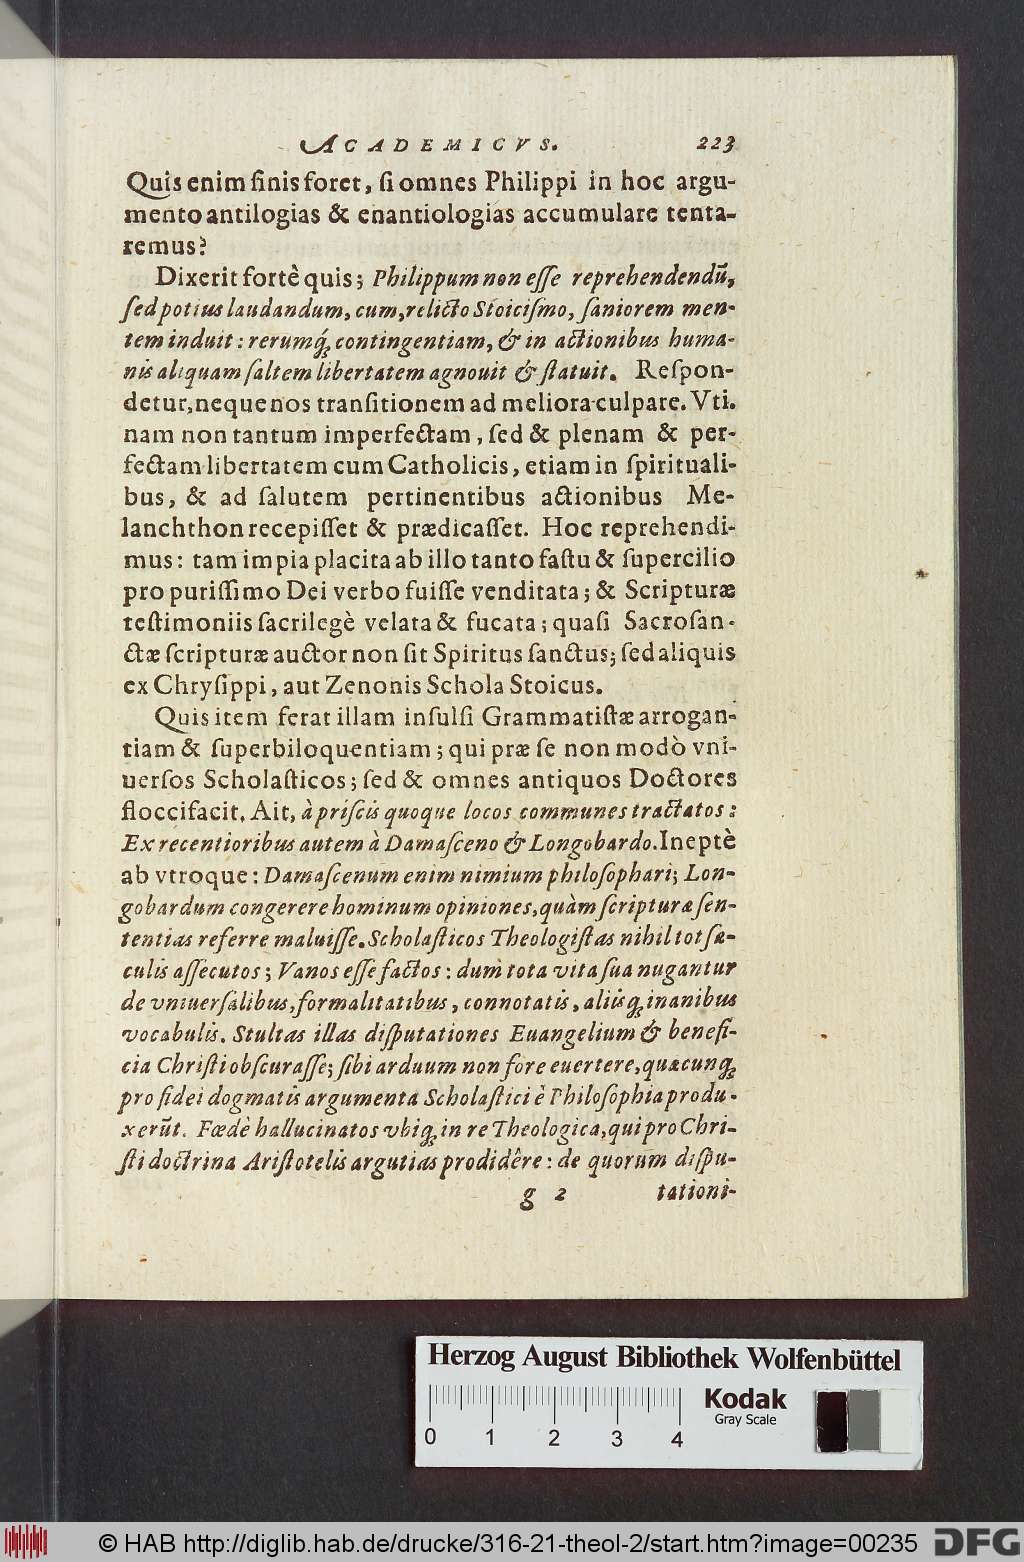 ACADEMICVS. 223
Quis enim finis foret, ſi omnes Philippi in hoc argu-
mento antilogias & enantiologias accumulare tenta-
remus?
Dixerit fortè quis; Philippum non eſſe reprehendendū,
ſed potius laudandum, cum, relicto Stoiciſmo, ſaniorem men-
tem induit: rerumq́; contingentiam, & in actionibus huma-
nis aliquam ſaltem libertatem agnouit & ſtatuit. Reſpon-
detur, neque nos tranſitionem ad meliora culpare. Vti-
nam non tantum imperfectam, ſed & plenam & per-
fectam libertatem cum Catholicis, etiam in ſpirituali-
bus, & ad ſalutem pertinentibus actionibus Me-
lanchthon recepiſſet & prædicaſſet. Hoc reprehendi-
mus: tam impia placita ab illo tanto faſtu & ſupercilio
pro puriſſimo Dei verbo fuiſſe venditata; & Scripturæ
teſtimoniis ſacrilegè velata & fucata; quaſi Sacroſan-
ctæ ſcripturæ auctor non ſit Spiritus ſanctus; ſed aliquis
ex Chryſippi, aut Zenonis Schola Stoicus.
Quis item ferat illam inſulſi Grammatiſtæ arrogan-
tiam & ſuperbiloquentiam; qui præ ſe non modò vni-
uerſos Scholaſticos; ſed & omnes antiquos Doctores
floccifacit. Ait, à priſcis quoque locos communes tractatos:
Ex recentioribus autem à Damaſceno & Longobardo. Ineptè
ab vtroque: Damaſcenum enim nimium philoſophari; Lon-
gobardum congerere hominum opiniones, quàm ſcripturæ ſen-
tentias referre maluiſſe. Scholaſticos Theologiſtas nihil tot ſæ-
culis aſſecutos; Vanos eſſe factos: dum tota vita ſua nugantur
de vniuerſalibus, formalitatibus, connotatis, aliisq; inanibus
vocabulis. Stultas illas diſputationes Euangelium & benefi-
cia Chriſti obſcuraſſe; ſibi arduum non fore euertere, quæcunq;
pro fidei dogmatis argumenta Scholaſtici è Philoſophia produ-
xerūt. Fœdè hallucinatos vbiq; in re Theologica, qui pro Chri-
ſti doctrina Ariſtotelis argutias prodidêre: de quorum diſpu-
g 2 tationi-
Herzog August Bibliothek Wolfenbüttel
0 1 2 3 4
Kodak
Gray Scale
© HAB http://diglib.hab.de/drucke/316-21-theol-2/start.htm?image=00235 DFG